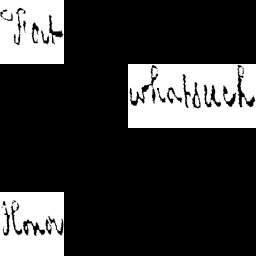 Fat
whatsuch
Honor